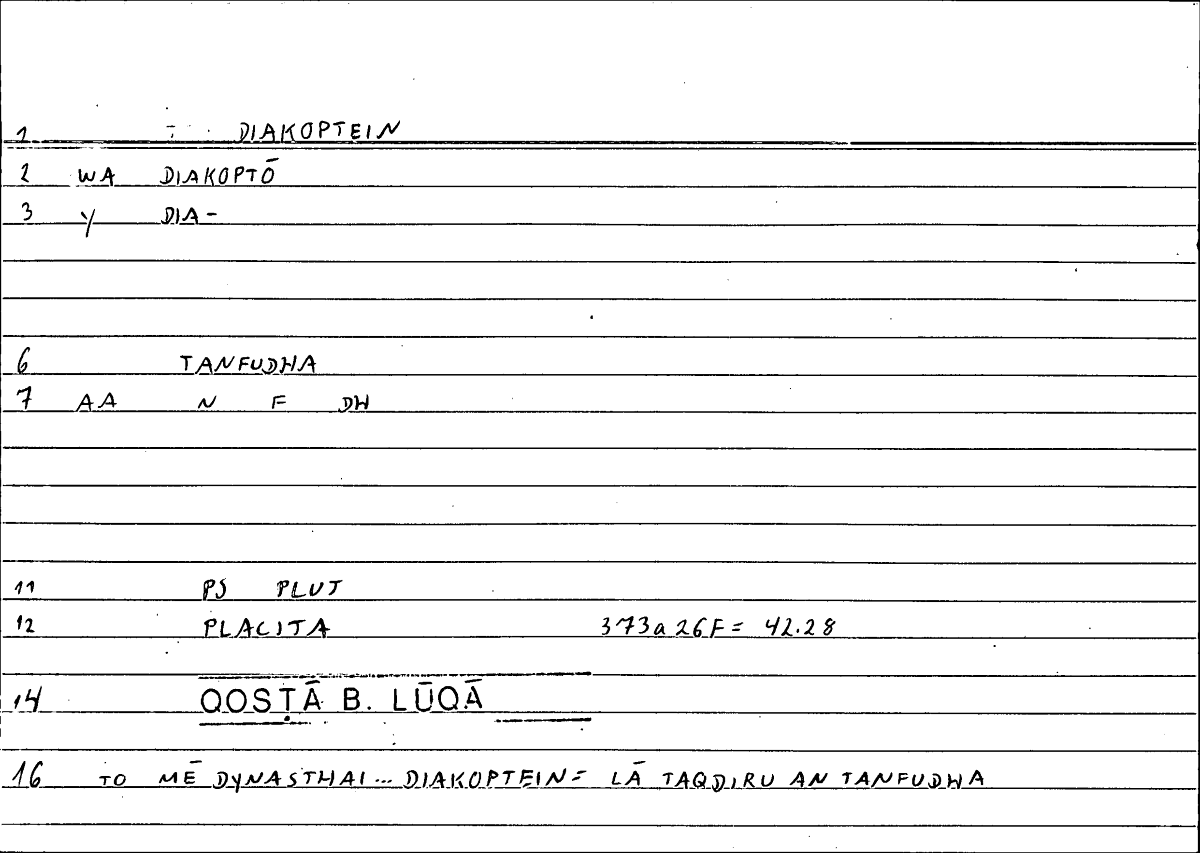 1 DIAKOPTEIN
2 WA DIAKOPTŌ
3 Y DIA-
6 TANFUDHA
7 AA N F DH
11 PS PLUT
12 PLACITA 373a26F= 42.28
14 QOSṬĀ B. LŪQĀ
16 TO MĒ DYNASTHAI... DIAKOPTEIN= LĀ TAQDIRU AN TANFUDHA